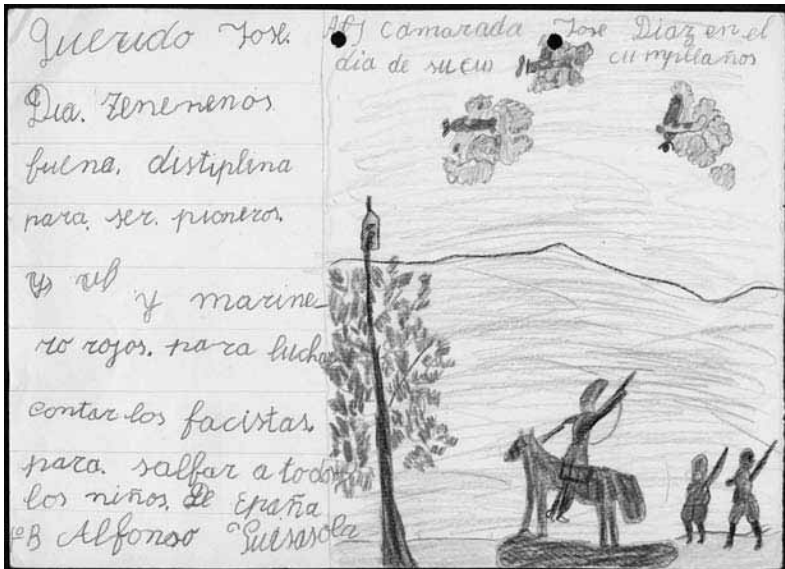 Querido Jose.
Dia. Zenenenos
buena. distiplina
para. ser. pioneros.
y marine-
ro rojos. para luchar
contar los facistas.
para. salbar a todos
los niños. de Epaña
1º B Alfonso Guisasola
Al camarada Jose Diaz en el
dia de su cumpleaños